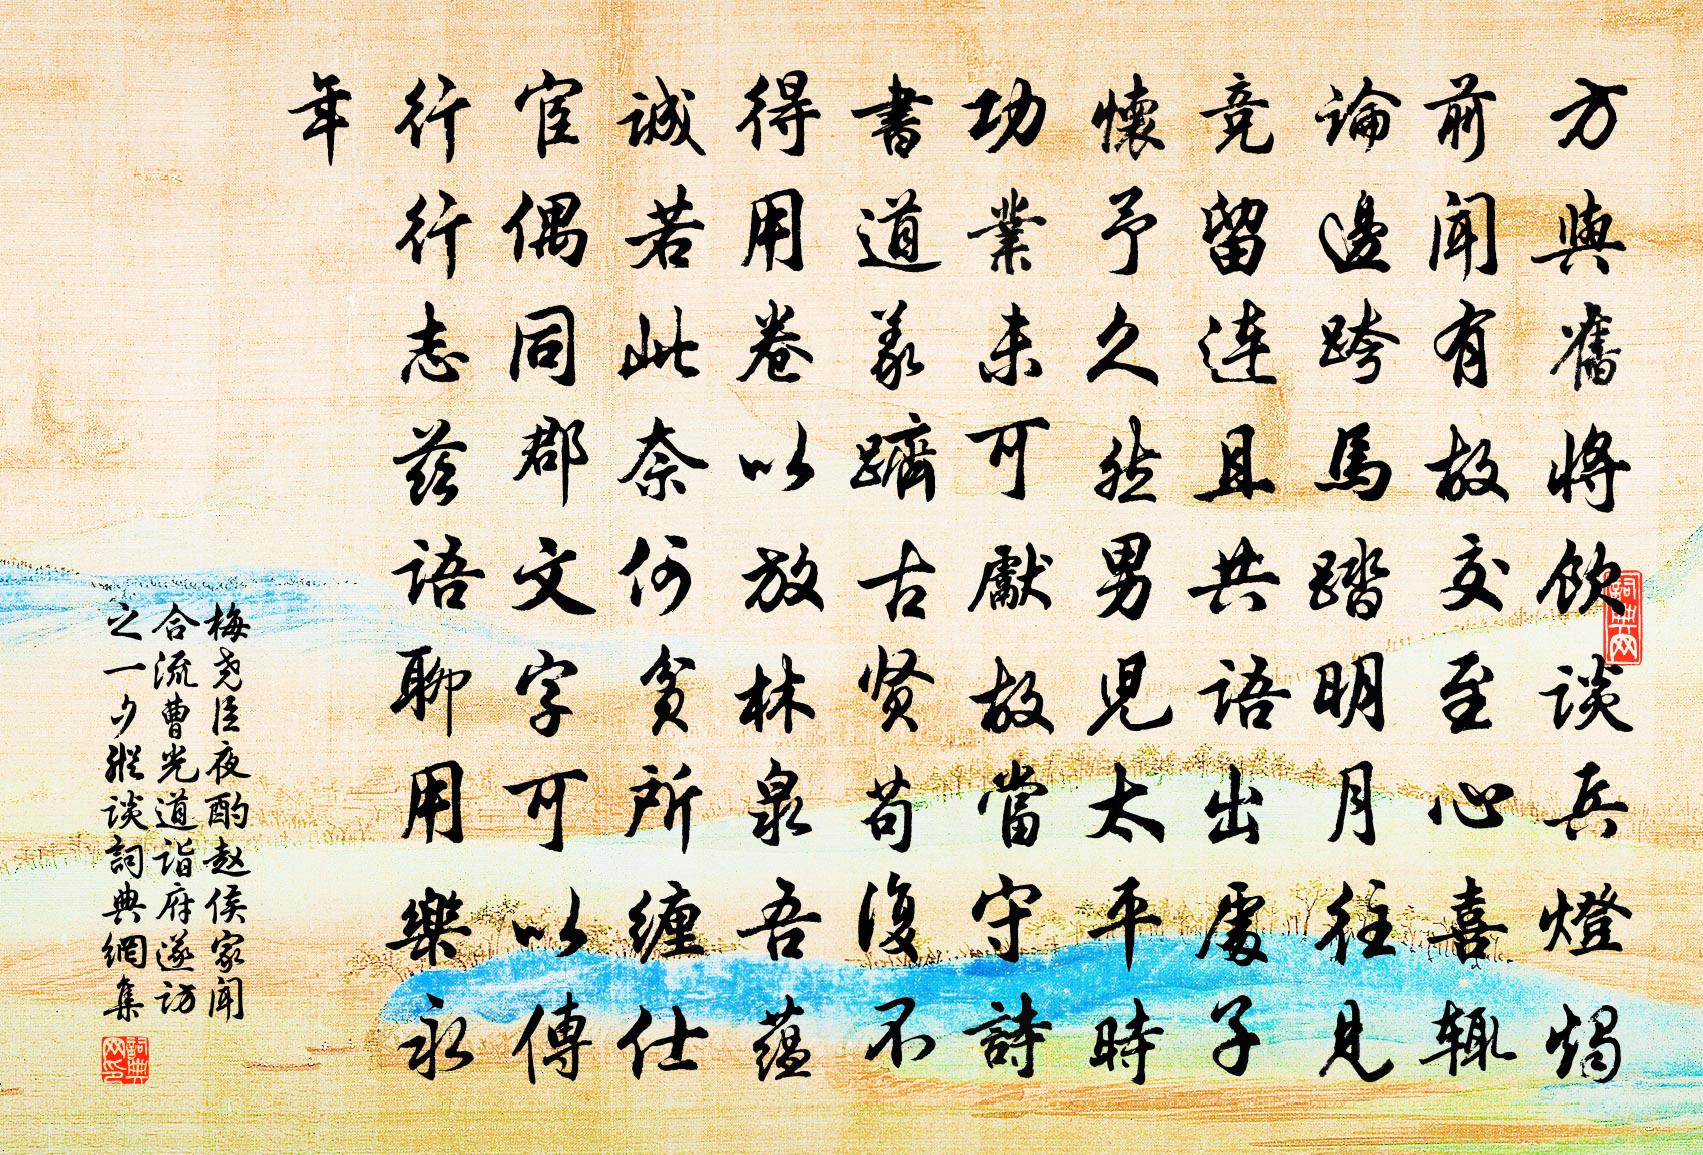 方與舊將飲談兵燈燭
前聞有故交至心喜輒
論邊跨馬踏明月往見
竞留连且共語出處子
懷予久然男児太平時
功業未可獻故當守詩
書道義躋古贤苟復不
得用卷以放林泉吾蕴
誠若此奈何贫所缠仕
宦偶同郡文字可以傳
行行志兹語聊用樂永
年
梅尧臣夜酌赵侯家闻
合流曹光道詣府遂访
之一夕縱谈詞典網集
詞典网
詞典网印